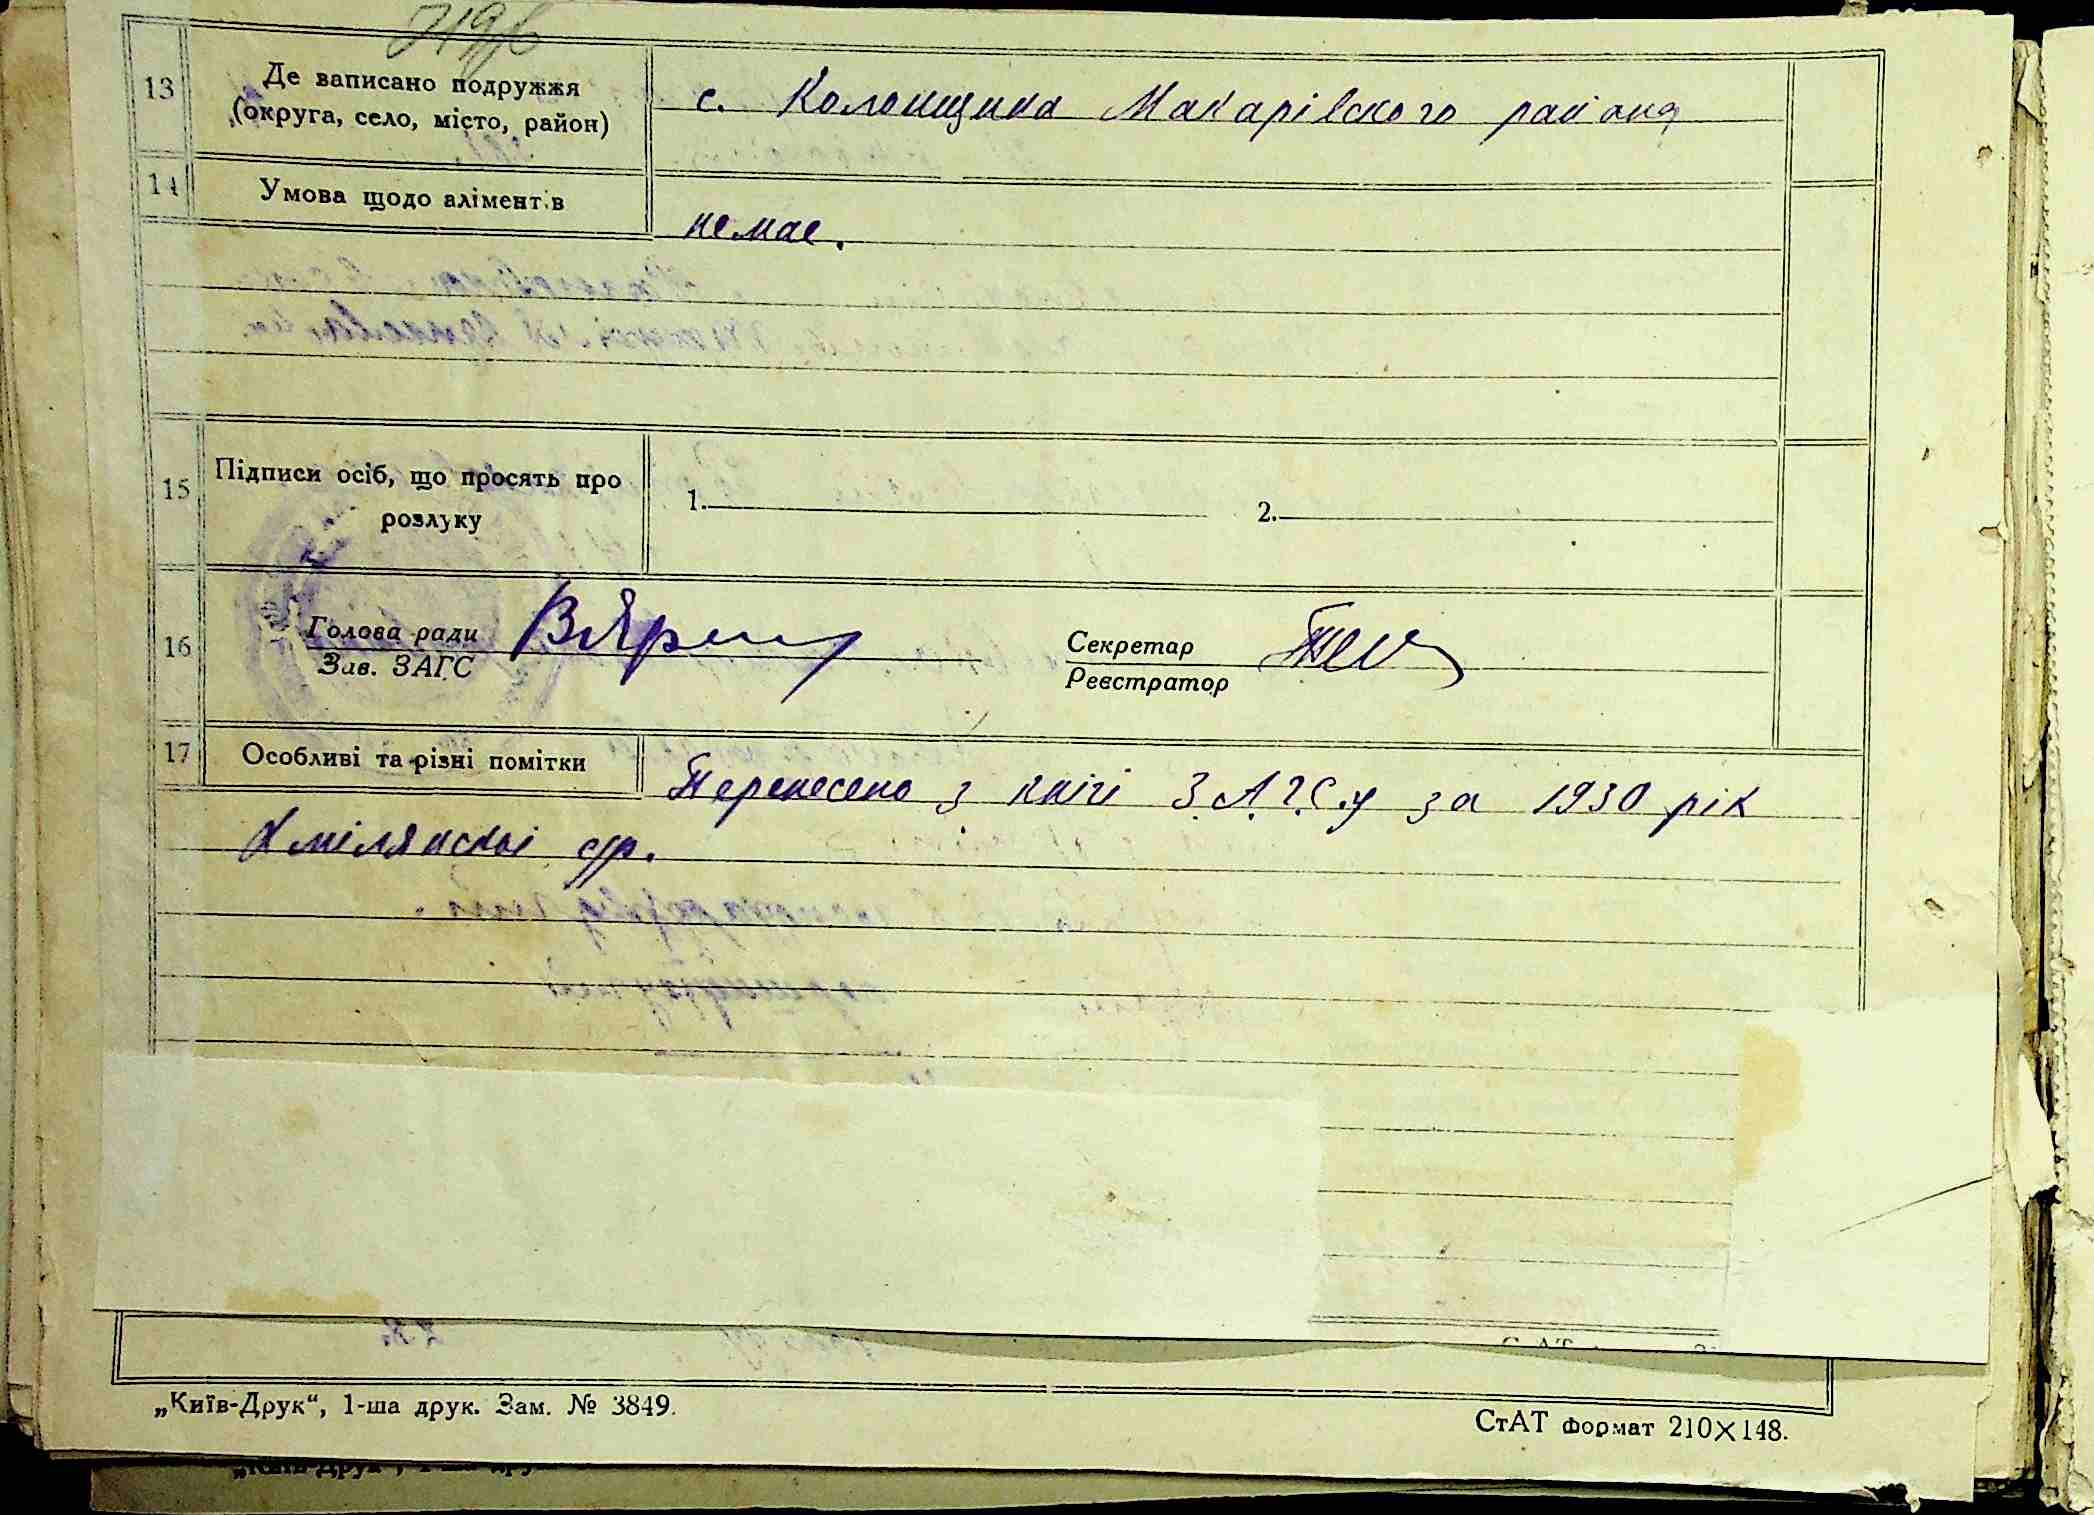 13
Де записано подружжя
(округа, село, місто, район)
с. Колонщина Макарівского района
14
Умова щодо аліментів
немає.
15
Підписи осіб, що просять про
розлуку
1.
2.
16
Голова ради
Зав. ЗАГС
Секретар
Реєстратор
17
Особливі та різні помітки
Перенесено з книги З.А.Г.С.у за 1930 рік
Хмілянскої с/р.
„Київ-Друк“, 1-ша друк. Зам. № 3849.
СтАТ формат 210×148.